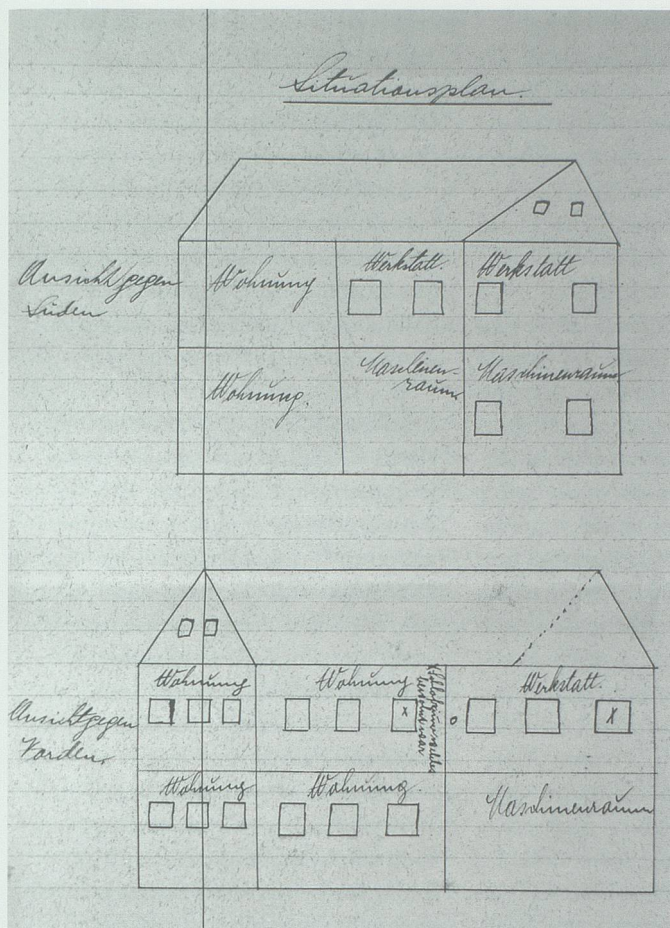 Situationsplan.
Ansicht gegen
Süden
Wohnung
Werkstatt.
Werkstatt
Wohnung.
Maschinen-
raum
Maschinenraum
Ansicht gegen
Norden
Wohnung
Wohnung
Werkstatt.
x
X
Wohnung
Wohnung.
Maschinenraum